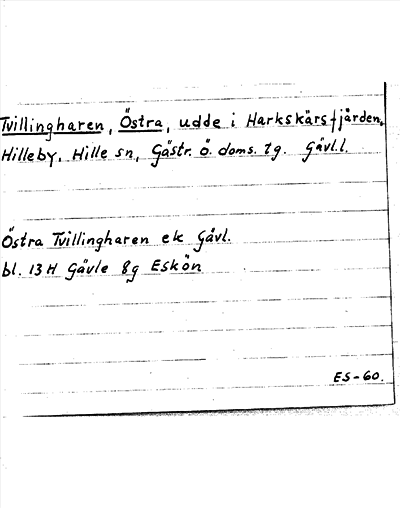 Tvillingharen, Östra, udde i Harkskärsfjärden,
Hilleby, Hille sn, Gästr. ö. doms. tg. Gävl.l.
Östra Tvillingharen ek Gävl.
bl. 13 H Gävle 8g Eskön
ES-60.